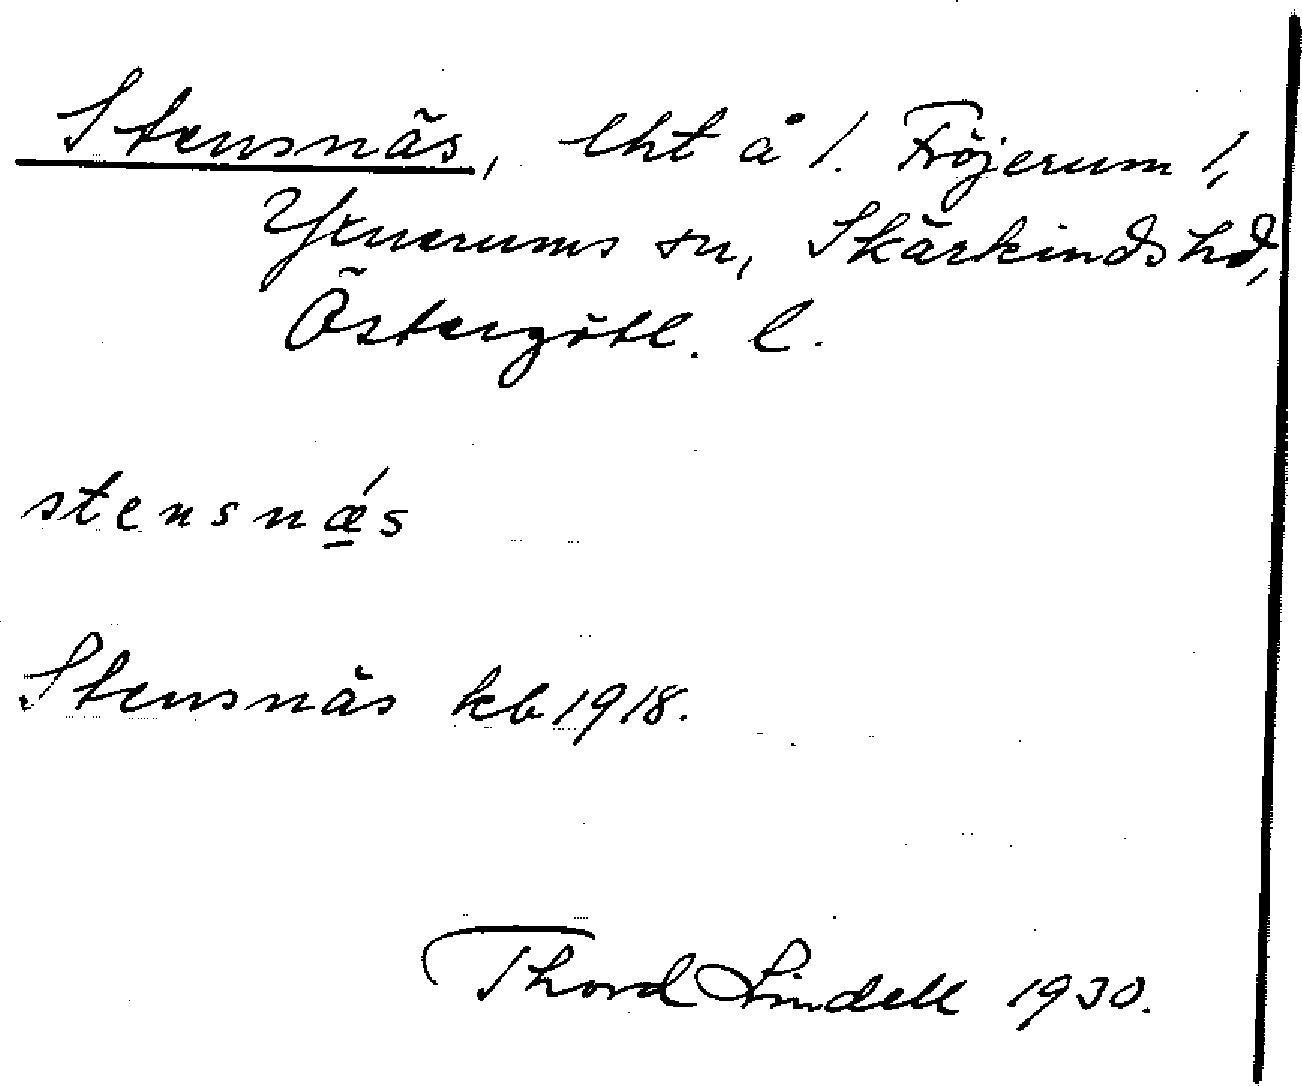 Stensnäs, lht å /. Fröjerum /,
Yxnerums sn, Skärkinds hd,
Östergötl. l.
stensnǽs
Stensnäs kb 1918.
Thord Lindell 1930.